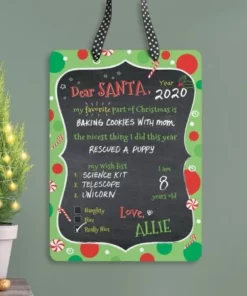 Dear SANTA, Year 2020
my favorite part of Christmas is
BAKING COOKIES WITH MOM
the nicest thing I did this year
RESCUED A PUPPY
my wish list
1. SCIENCE KIT
2. TELESCOPE
3. UNICORN
I am
8
years old
Naughty
Nice
Really Nice
Love,
ALLIE